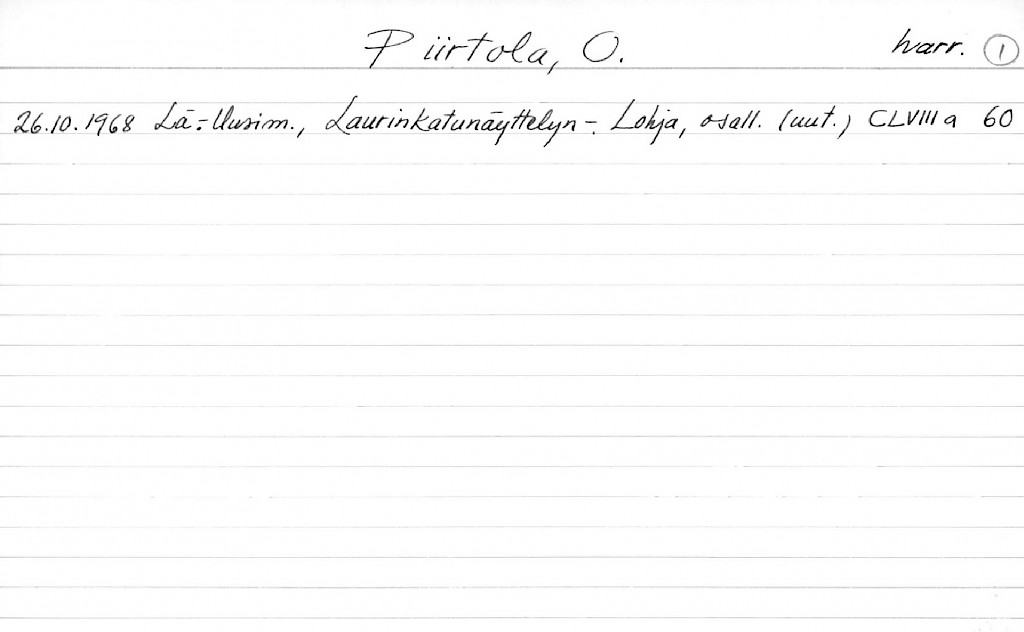 Piirtola, O. harr. 1
26.10.1968 Lä-Uusim., Laurinkatunäyttelyn - Lohja, osall. (uut.) CLVIII a 60